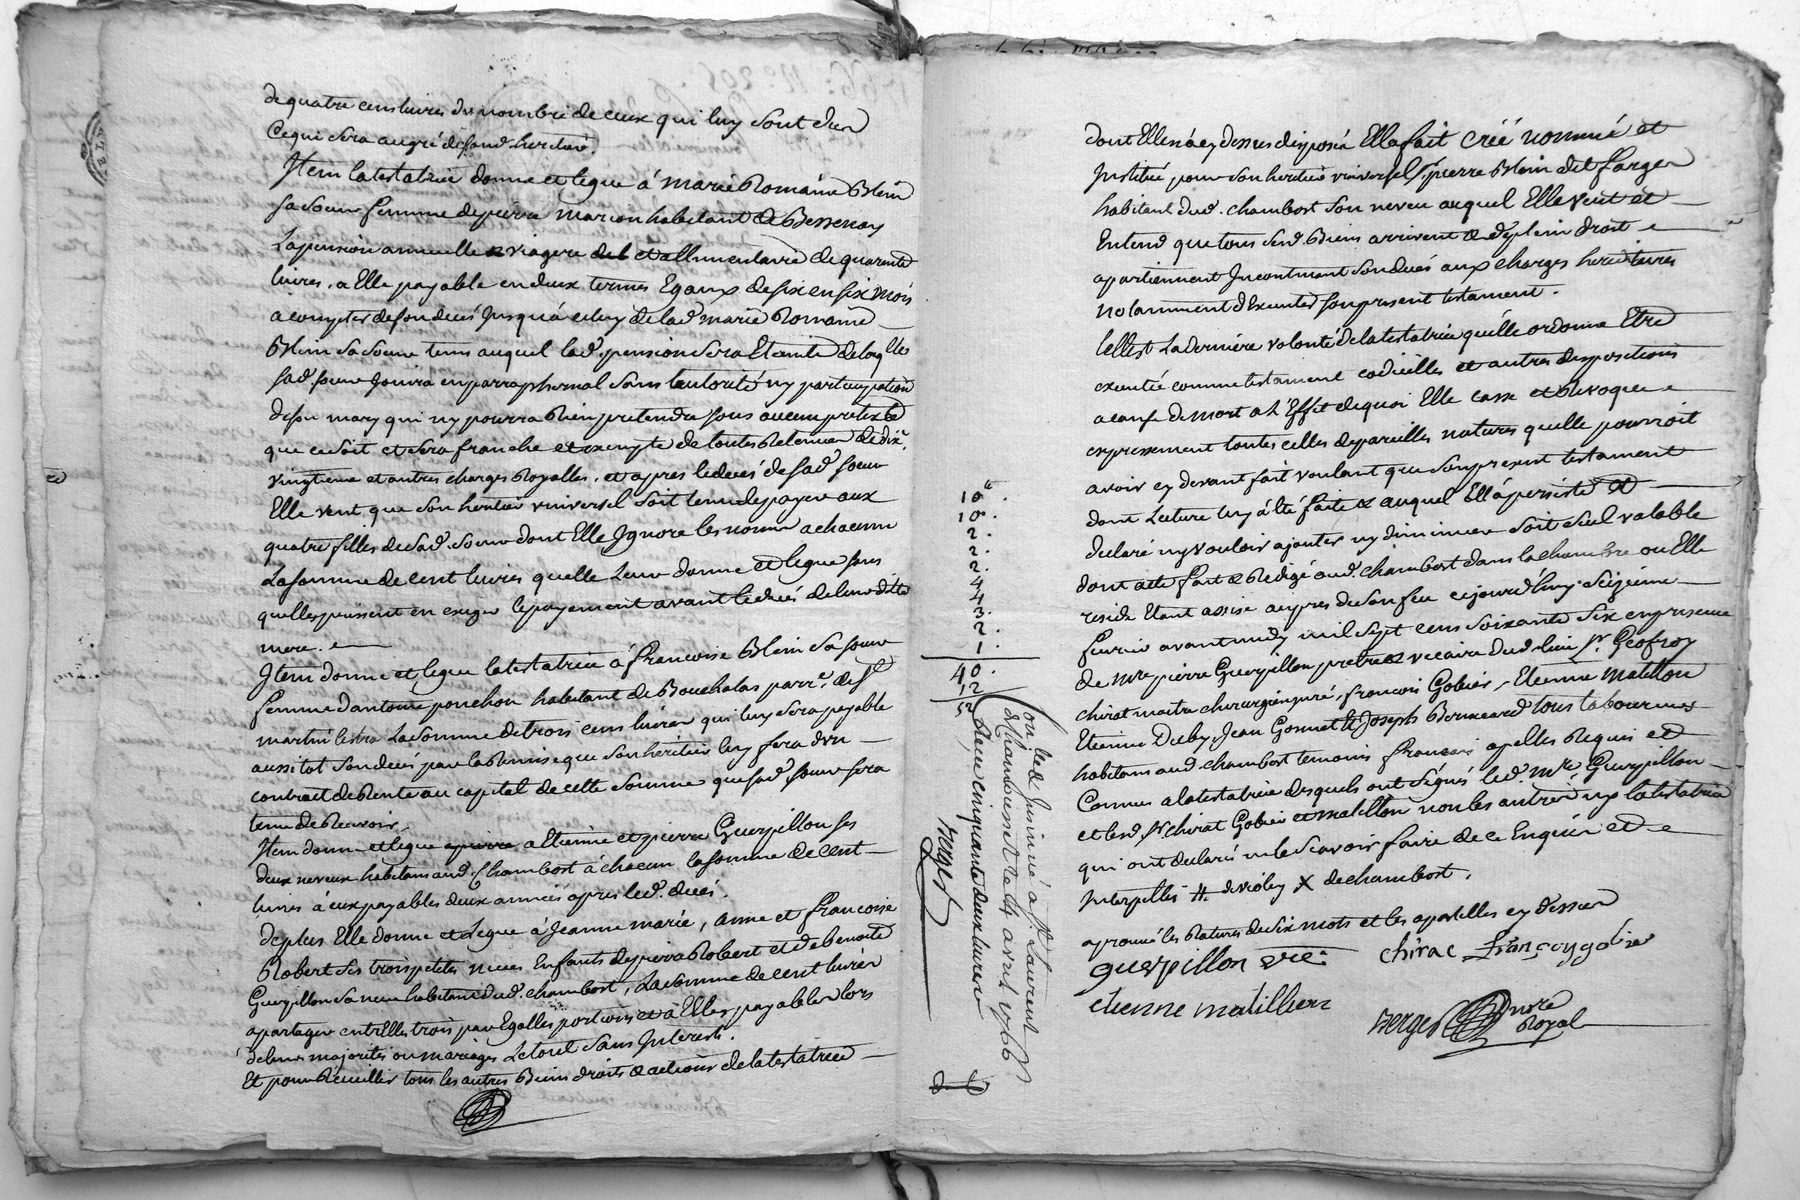 de quatre cens livres du nombre de ceux qui luy sont dus
ce qui sera au gré de sond. heritier.
Item la testatrice donne et legue à marie Romaine Blein
sa soeur femme de pierre marion habitant de Bessenay
la pension annuelle & viagere et allimentaire de quarente
livres, a Elle payable en deux termes Egaux de six en six mois
a compter de son decés jusqu'à celuy de lad. marie Romaine
Blein sa soeur tems auquel lad. pension sera Eteinte de laqlle
sad. soeur jouira en parraphernal sans l'autorité ny participation
de son mary qui n'y pourra Rien pretendre sous aucun pretexte
que ce soit et sera franche et exempte de toutes Retenues de dixe.
vingtieme et autres charges Royalles. et apres le decés de sad. soeur
Elle veut que son heritier universel soit tenu de payer aux
quatre filles de sad. soeur dont Elle Ignore les noms a chacune
la somme de cent livres quelle Leur donne et legue sans
quelles puissent en exiger le payement avant le decés de leur ditte
mere.
Item donne et legue la testatrice à francoise Blein sa soeur
femme d'antoine ponchon habitant de Bouchalas parre. de st
martin lestra La somme de trois cens livres qui luy sera payable
aussitot son decés par la Remise que son heritier luy fera d'un
contract de Rente au capital de cette somme que sad. soeur sera
tenue de Recevoir,
Item donne et legue a Etienne et pierre Guerpillon ses
deux neveux habitans aud. Chambost à chacun la somme de cent
livres à eux payables deux années après led. decés.
De plus Elle donne et Legue à Jeanne marie, anne et francoise
Robert ses trois petites nieces Enfants de pierre Robert et de benoite
Guerpillon sa niece habitans dud. chambost, La somme de cent livres
a partager entr'Elles trois par Egalles portions et à Elles payables lors
de leurs majorités ou mariages Le tout sans Interests.
Et pour Recueillir tous les autres Biens droits & actions de la testatrice
10.
10.
2.
2.
2.
4
4
3.
2.
1.
40.
12
52
Con lle &amp; Insinué à st. Laurent
de Chamousset le 24 avril 1766
Reçu cinquante deux livres
Berger
dont Elle n'a cy dessus disposé Elle a fait créé nommé et
Institué pour son heritier universel Sr. pierre Blein dit farges
habitant dud. chambost son neveu auquel Elle veut et
Entend que tous sesd. Biens arrivent & de plein droit
apartiennent Incontinent son decés aux charges hereditaires
notamment d'Executer son present testament.
Telle est La derniere volonté de la testatrice qu'elle ordonne Etre
executée comme testament codicilles et autres dispositions
a cause de mort a l'Effet de quoi Elle casse et Revoque
expressement toutes celles de pareilles natures quelle pourroit
avoir cy devant fait voulant que son present testament
dont Lecture luy a Eté faite & auquel Ell'a persisté et
declaré ny vouloir ajouter ny diminuer soit seul valable
dont acte fait & Redigé aud. chambost dans la chambre ou Elle
reside Etant assise aupres de son feu cejourd'huy seizieme
fevrier avant midy mil sept cens soixante six en presence
de mre pierre Guerpillon pretre & vicaire dud. lieu sr. Geofroy
chirat maitre chirurgien juré, francois Gobier, Etienne Matillon
Etienne Duby, Jean Gonnet & Joseph Bernard tous laboureurs
habitans aud. chambost temoins francois apellés Requis et
Connus a la testatrice desquels ont signés led. mre Guerpillon
et lesd. sr chirat Gobier et matillon non les autres ny la testatrice
qui ont declaré ne le scavoir faire de ce Enquis et
Interpellés # de Violay X de chambost.
aprouvé les Ratures de six mots et les apostilles cy dessus
guerpillon vre. chirac françoy gobier
etienne matillion
Berger nore
Royal